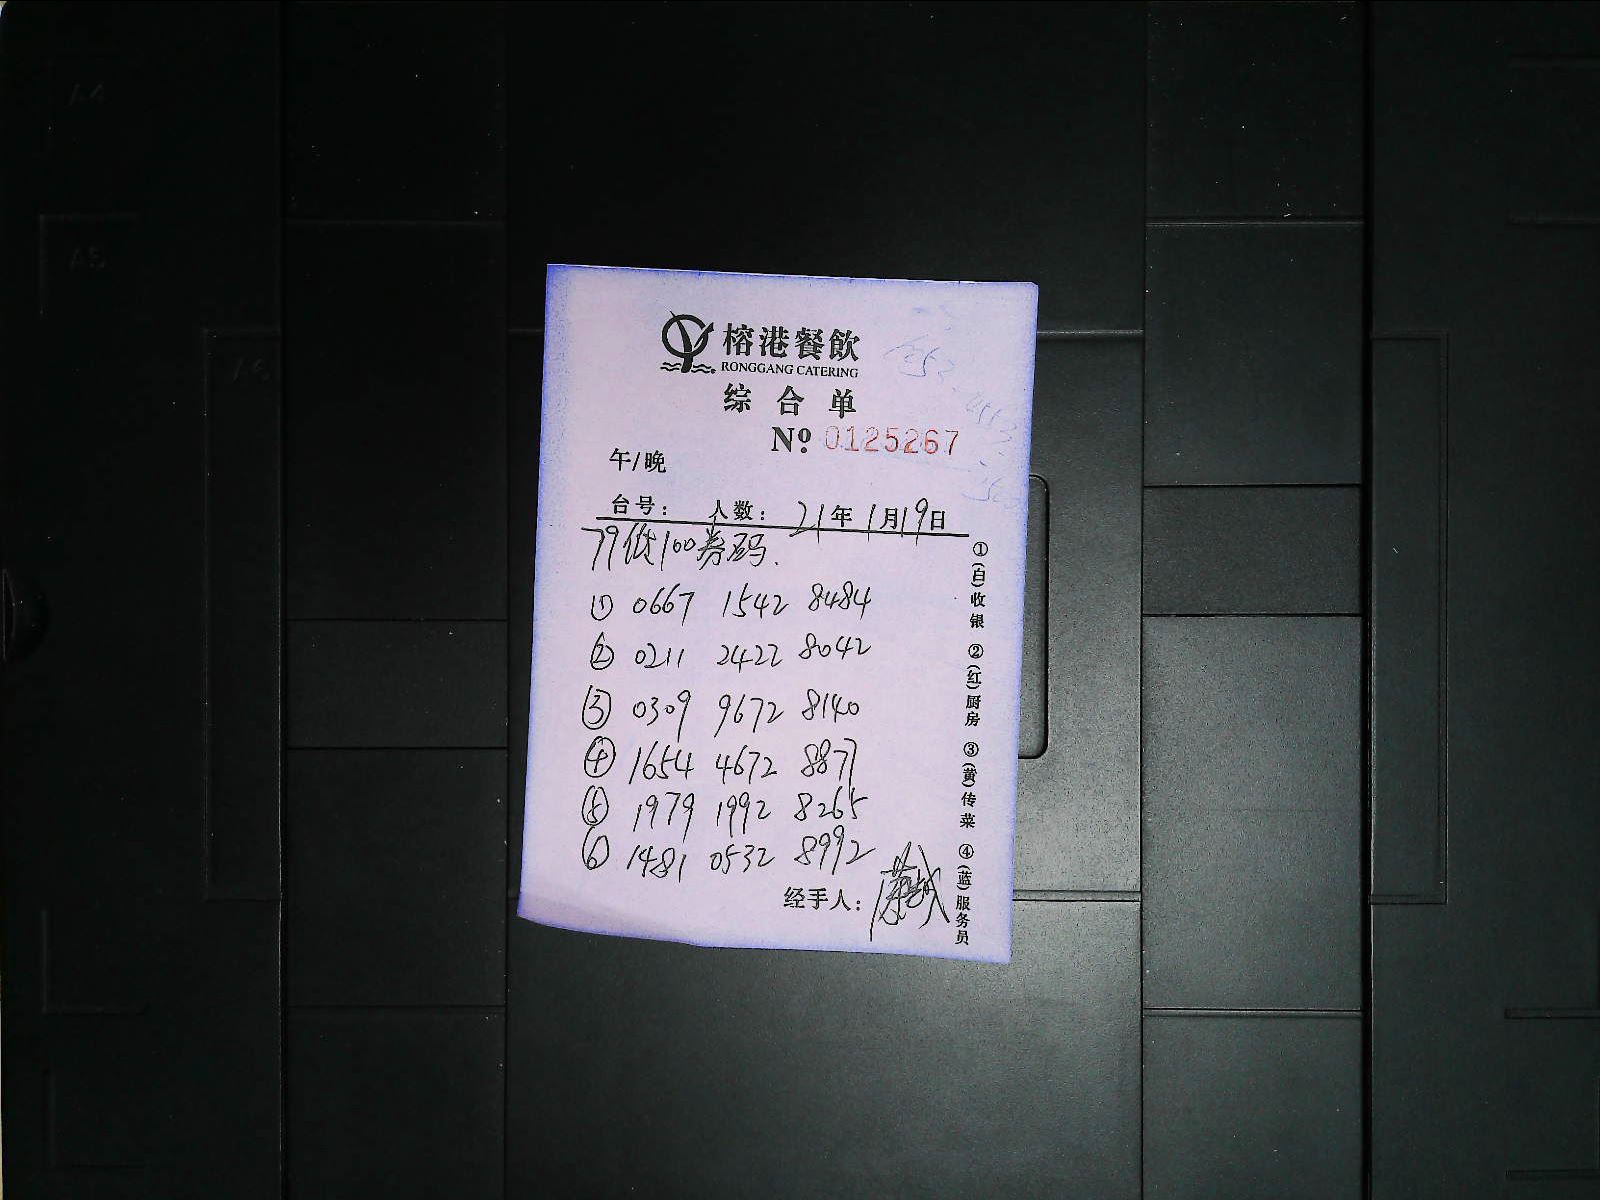 榕港餐飲
RONGGANG CATERING
综合单
Nº 0125267
午/晚
台号： 人数： 21年1月19日
79抵100券码.
① 0667 1542 8484
② 0211 2422 8042
③ 0309 9672 8140
④ 1654 4672 8877
⑤ 1979 1992 8265
⑥ 1481 0532 8992
经手人：
①(白)收银 ②(红)厨房 ③(黄)传菜 ④(蓝)服务员
A4
A5